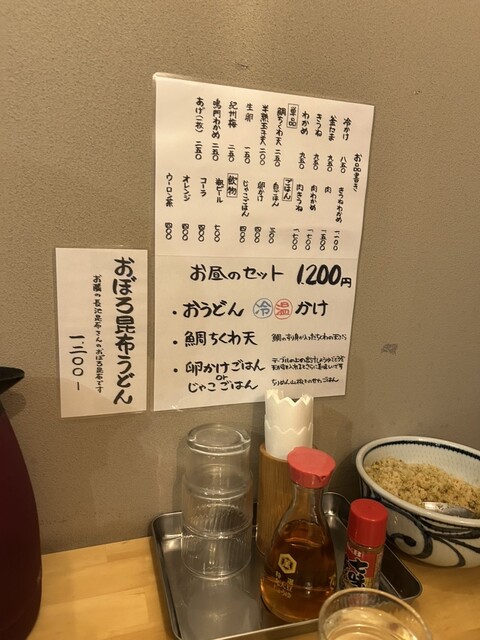 お品書き
冷かけ 八五〇
釜たま 九五〇
きつね 九五〇
わかめ 九五〇
単品
鯛ちくわ天 二五〇
半熟玉子天 二〇〇
生卵 一五〇
紀州梅 二五〇
鳴門わかめ 二五〇
あげ(二枚) 二五〇
きつねわかめ 一一〇〇
肉
肉わかめ 一七〇〇
肉きつね 一七〇〇
ごはん
白ごはん 三〇〇
卵かけ 四〇〇
じゃこごはん 四〇〇
飲物
瓶ビール 七〇〇
コーラ 四〇〇
オレンジ 四〇〇
ウーロン茶 四〇〇
お昼のセット 1,200円
・おうどん 冷 温 かけ
・鯛ちくわ天
・卵かけごはん
or
じゃこごはん
おぼろ昆布うどん
お隣の長池昆布さんのおぼろ昆布です
一二〇〇-